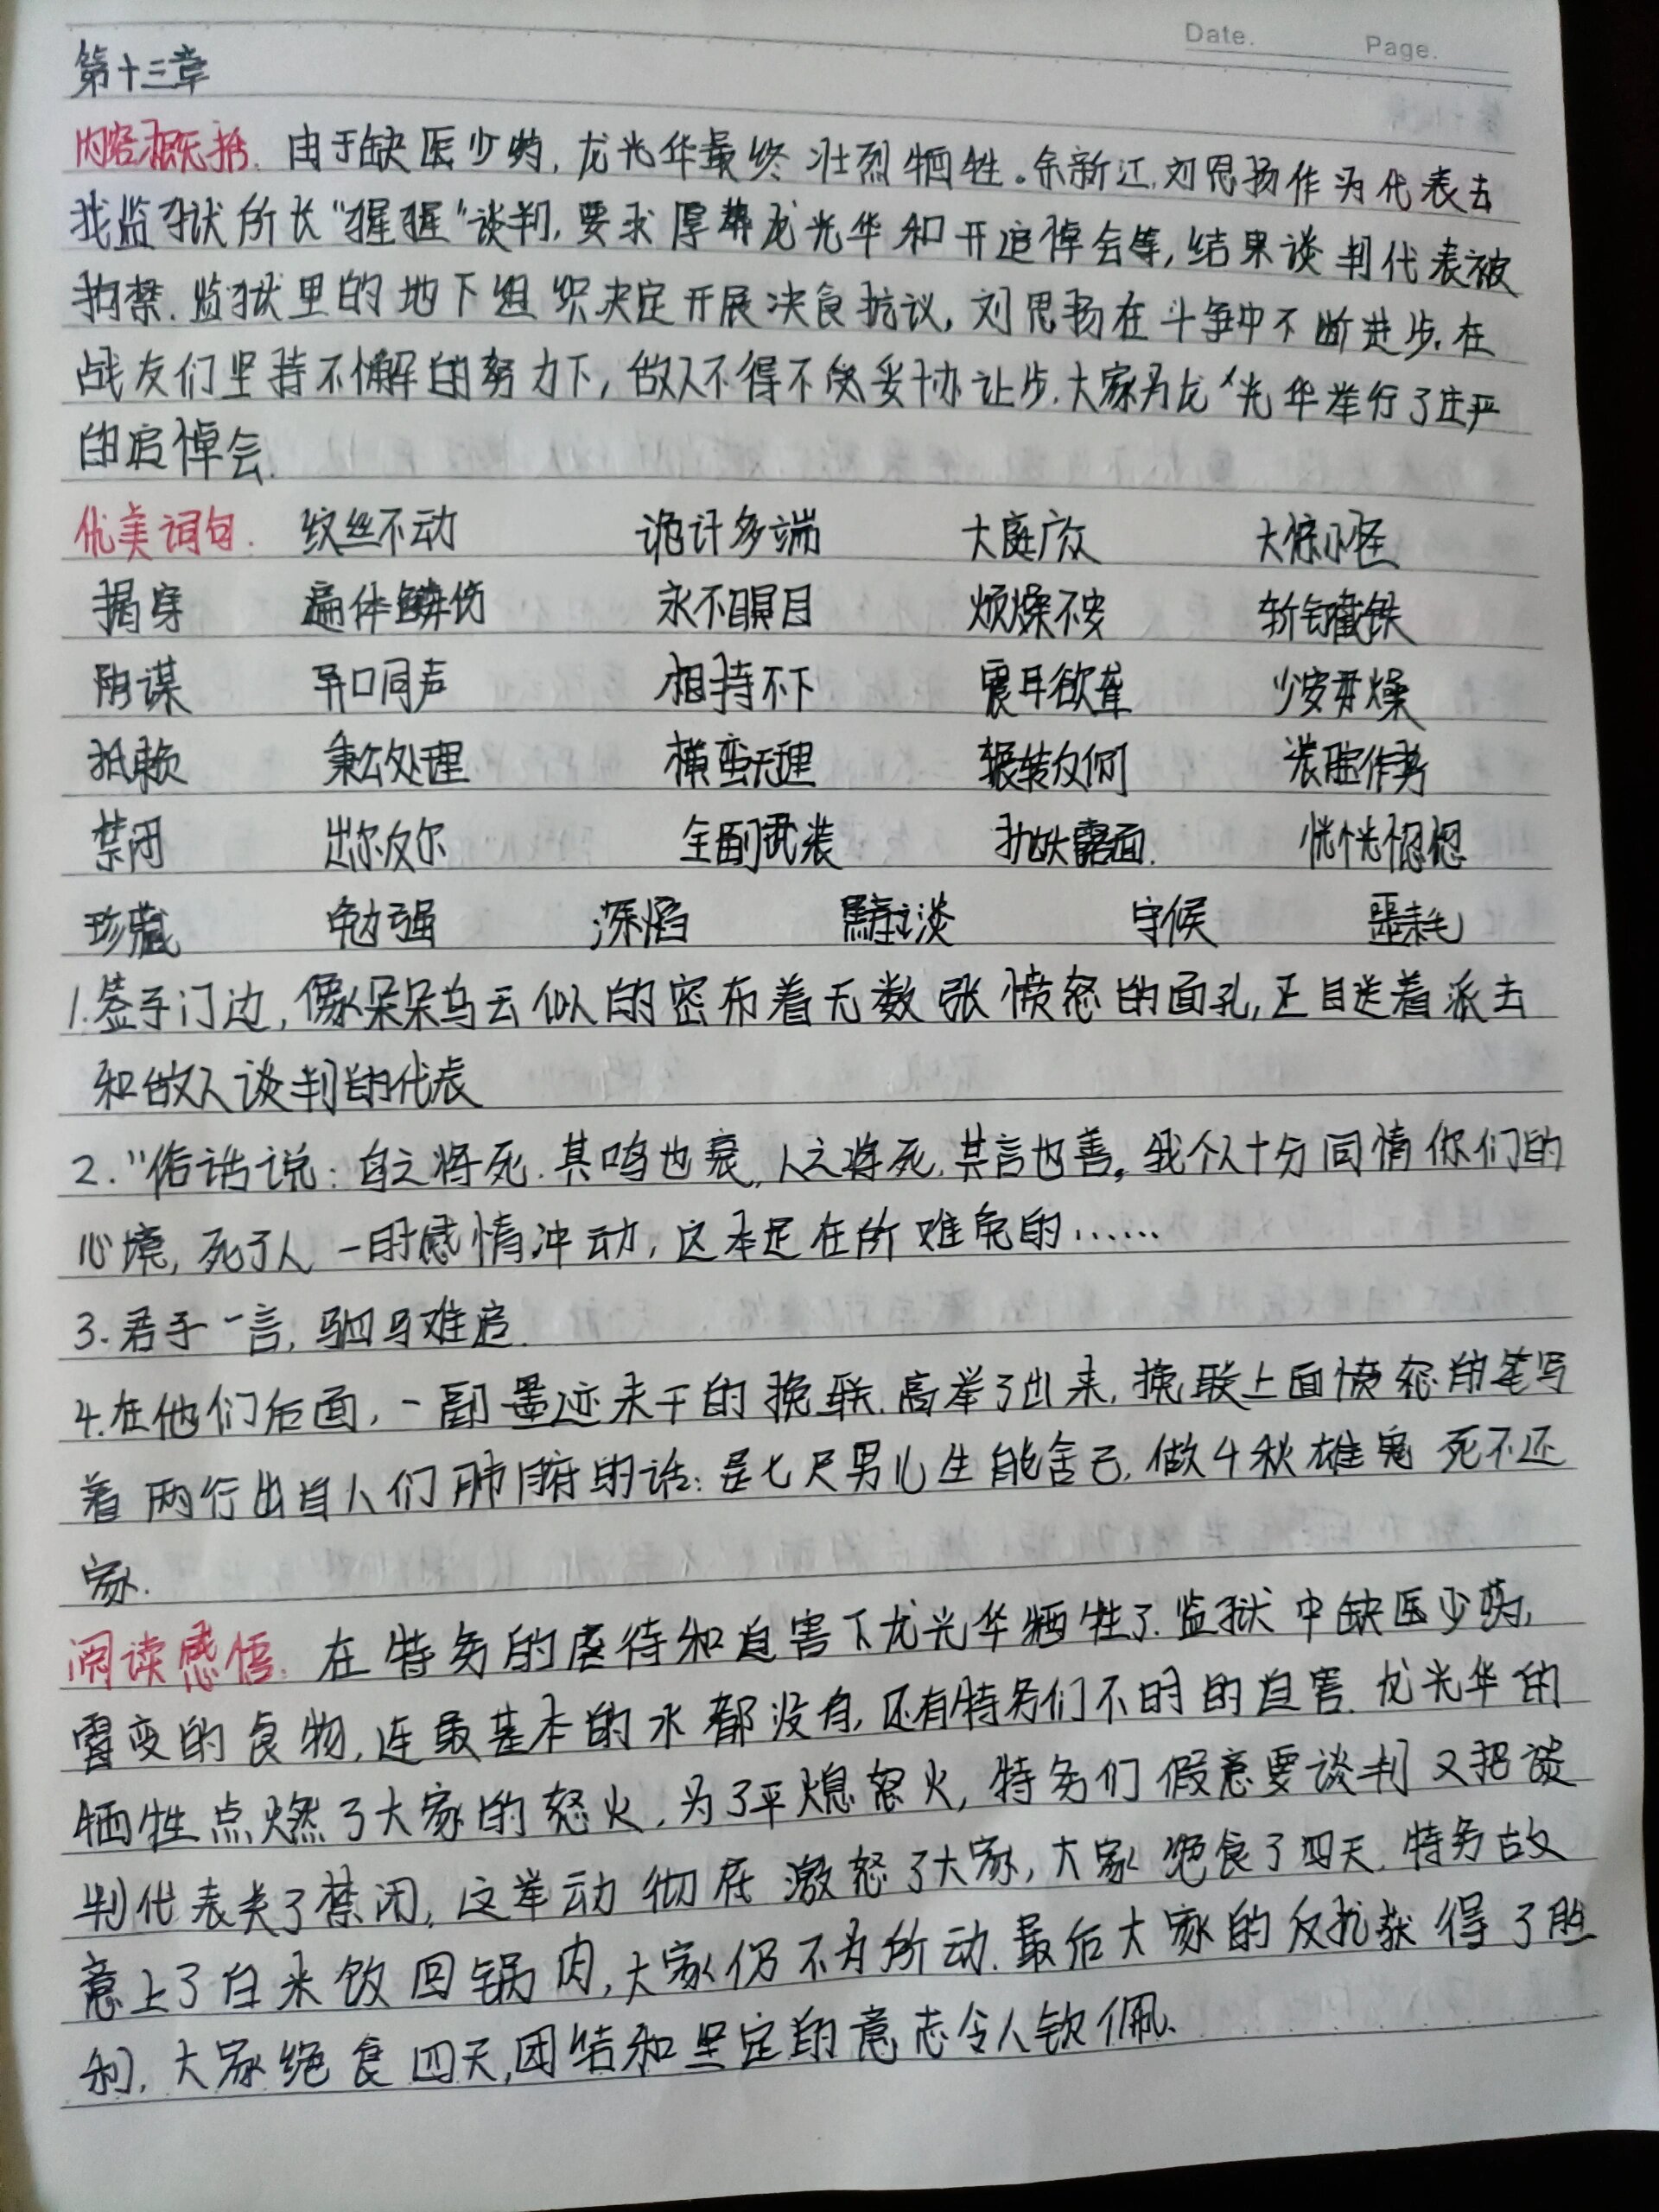 Date. Page.
第十三章
内容概括. 由于缺医少药, 龙光华最终壮烈牺牲。余新江, 刘思扬作为代表去
找监狱所长“猩猩”谈判, 要求厚葬龙光华和开追悼会等, 结果谈判代表被
拘禁. 监狱里的地下组织决定开展决食抗议, 刘思扬在斗争中不断进步. 在
战友们坚持不懈的努力下, 敌人不得不妥协让步. 大家为龙光华举行了庄严
的追悼会.
优美词句. 纹丝不动 诡计多端 大庭广众 大惊小怪
揭穿 遍体鳞伤 永不瞑目 烦燥不安 斩钉截铁
阴谋 异口同声 相持不下 震耳欲聋 少安毋燥
抵赖 秉公处理 横蛮无理 辗转反侧 装腔作势
禁闭 出尔反尔 全副武装 抛头露面. 恍恍惚惚
珍藏 勉强 深陷 黯淡 守候 噩耗
1. 签子门边, 像朵朵乌云似的密布着无数张愤怒的面孔, 正目送着派去
和敌人谈判的代表
2. “俗话说: 鸟之将死. 其鸣也哀, 人之将死, 其言也善。我个人十分同情你们的
心境, 死了人一时感情冲动, 这本是在所难免的......
3. 君子一言, 驷马难追.
4. 在他们后面, 一副墨迹未干的挽联. 高举了出来, 挽联上面愤怒的笔写
着两行出自人们肺腑的话: 是七尺男儿生能舍己, 做千秋雄鬼 死不还
家.
阅读感悟. 在特务的虐待和迫害下龙光华牺牲了. 监狱中缺医少药,
霉变的食物, 连最基本的水都没有, 还有特务们不时的迫害. 龙光华的
牺牲点燃了大家的怒火, 为了平熄怒火, 特务们假意要谈判又把谈
判代表关了禁闭, 这举动彻底激怒了大家, 大家绝食了四天. 特务故
意上了白米饭回锅肉, 大家仍不为所动. 最后大家的反抗获得了胜
利, 大家绝食四天, 团结和坚定的意志令人钦佩.